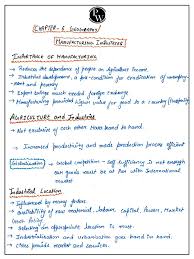 PW
CHAPTER-6 GEOGRAPHY
MANUFACTURING INDUSTRIES
IMPORTANCE OF MANUFACTURING
→ Reduce the dependence of people on Agriculture Income
→ Industrial development, a pre-condition for eradication of unemployment and poverty
→ Export brings much needed foreign exchange
→ Manufacturing provides higher value for good to a country (Prosperity)
AGRICULTURE and Industries
→ Not exclusive of each other. Move hand in hand.
→ Increased productivity and made production process efficient
Globalisation → Global competition - Self sufficiency is not enough
our goods must be at par with International market
Industrial Location
→ Influenced by many factors
→ Availability of raw material, labour, capital, Power, Market
→ Selecting an appropriate location is must.
→ Industrialisation and urbanisation goes hand in hand.
→ Cities provide market and services.